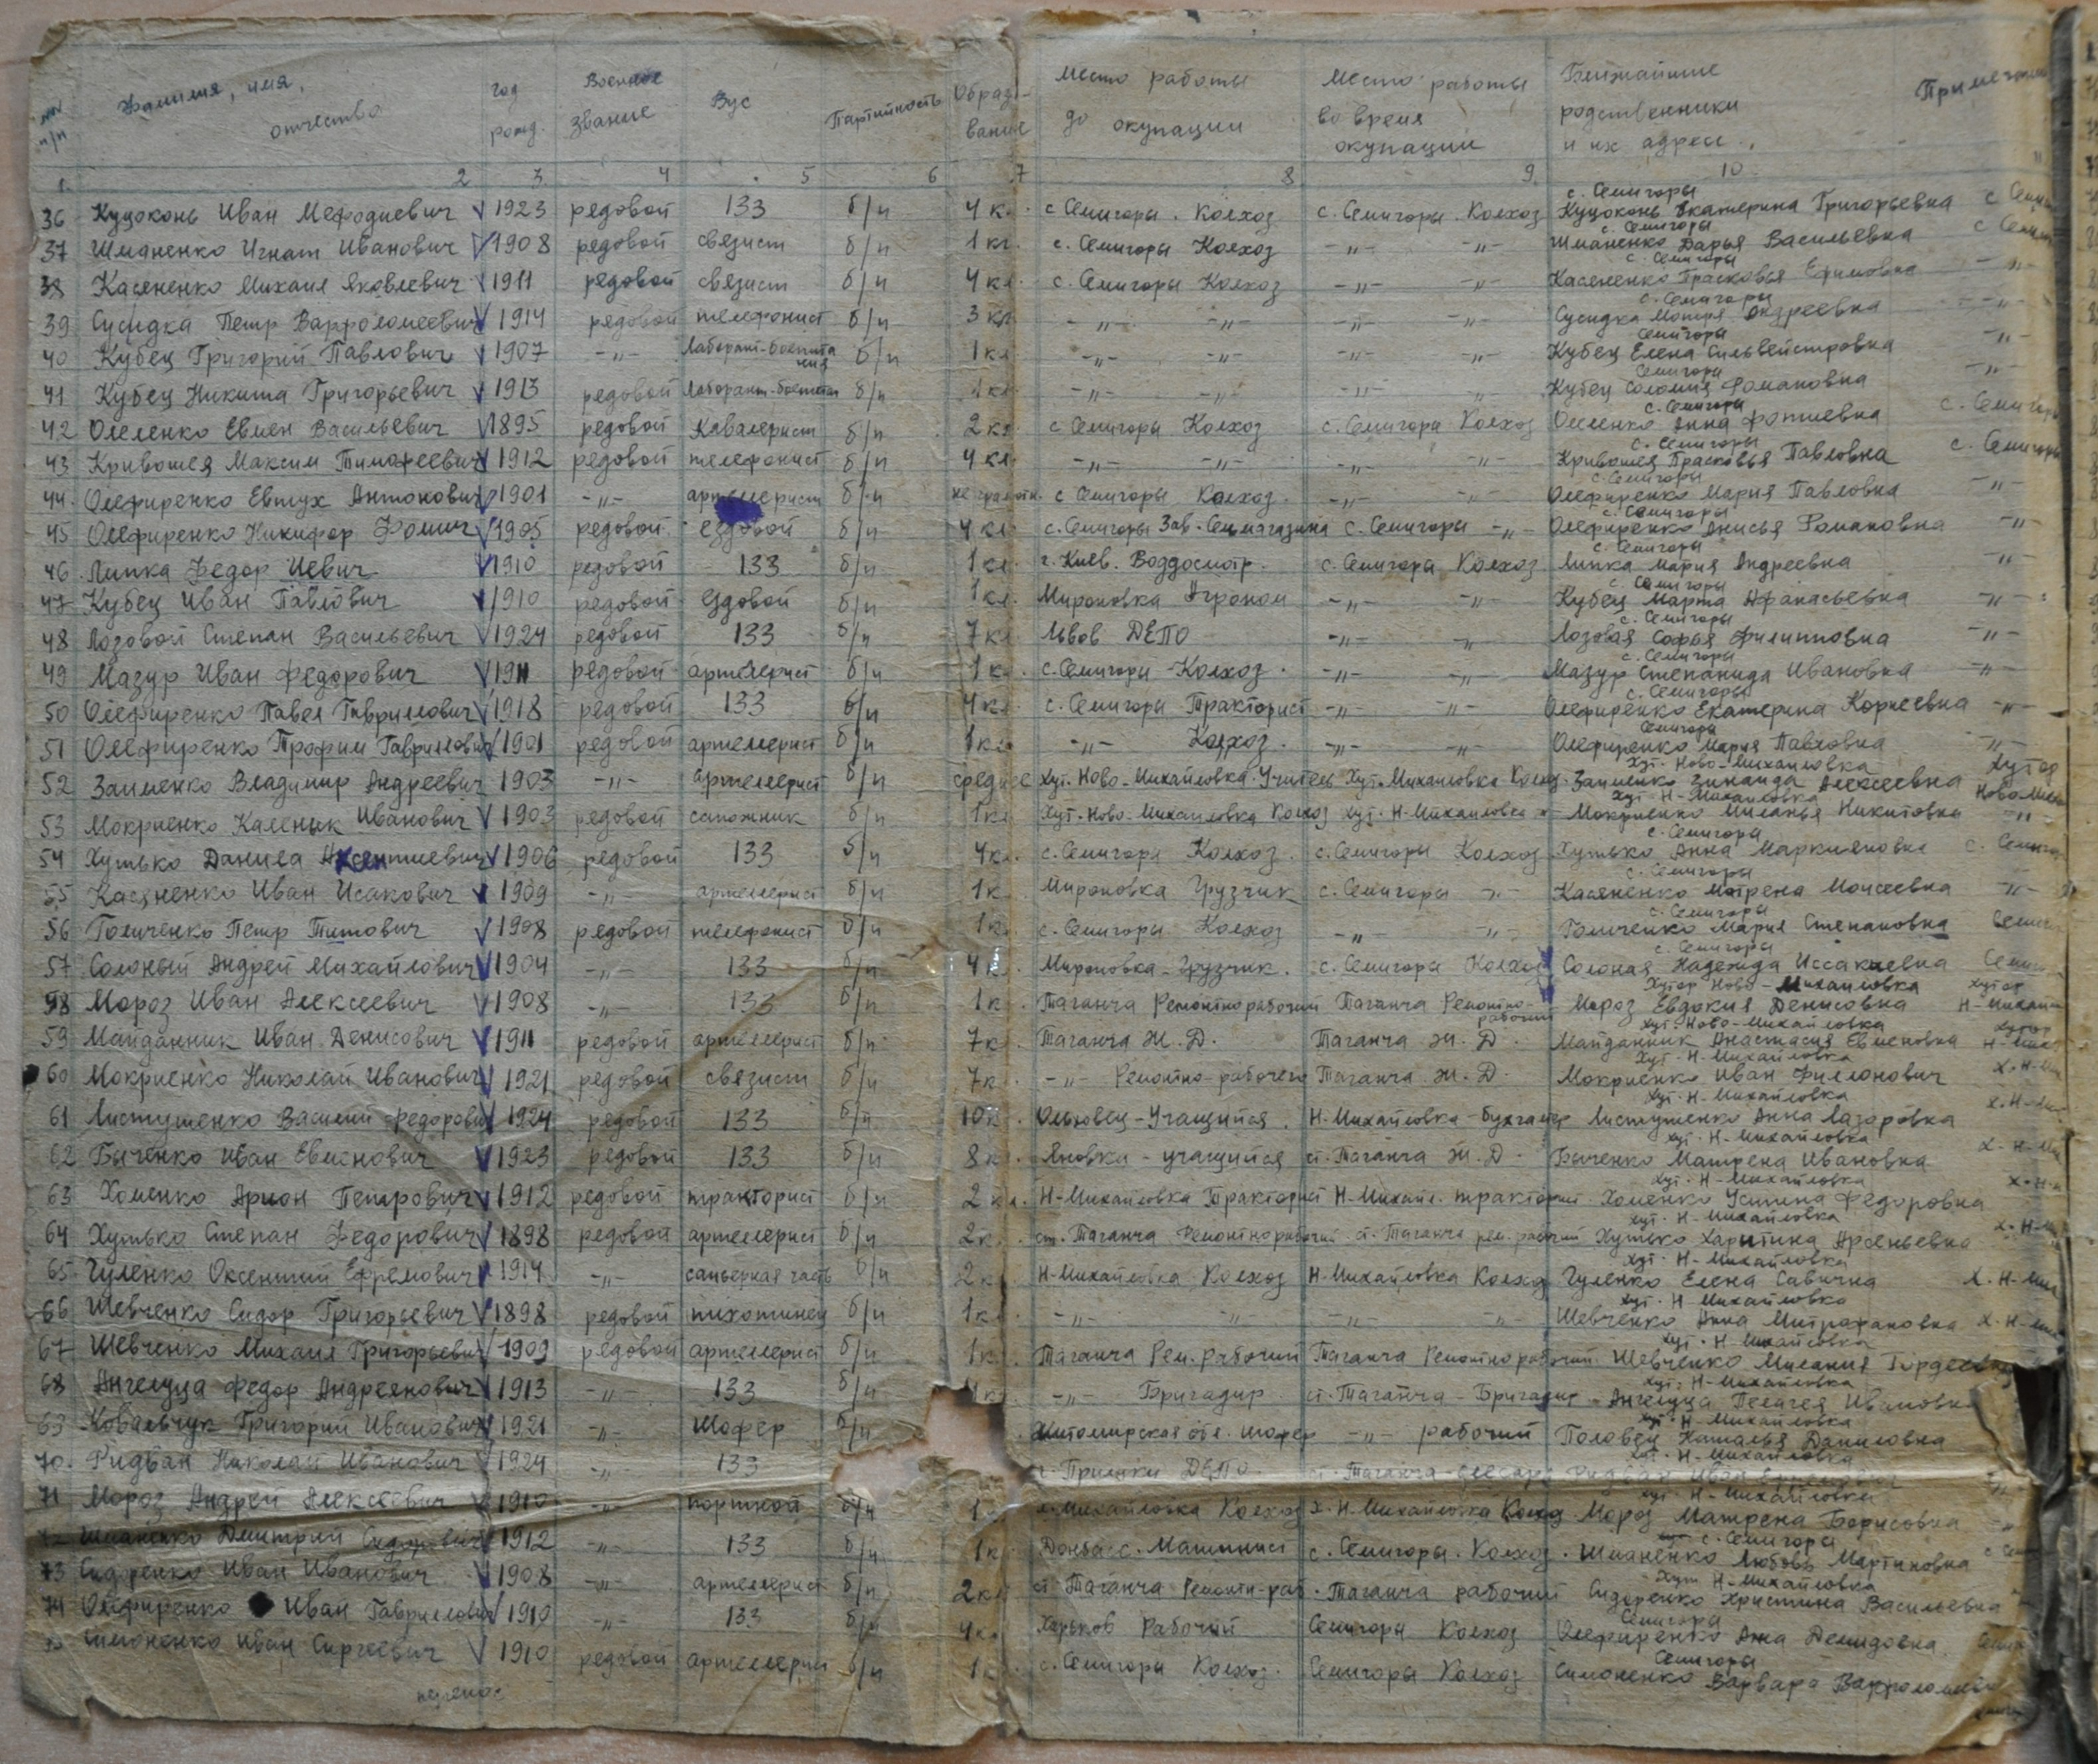 NN п/п Фамилия, имя, отчество год рожд. Военное звание Вус Партийность Образование Место работы до окупации Место работы во время окупации Ближайшие родственники и их адреса
1 2 3 4 5 6 7 8 9 10
с. Семигоры
36 Куцоконь Иван Мефодиевич V 1923 редовой 133 б/п 4 кл. с Семигоры. Колхоз с. Семигоры. Колхоз Куцоконь Екатерина Григорьевна
с. Семигоры
37 Шманенко Игнат Иванович V 1908 редовой связист б/п 1 кл. с. Семигоры Колхоз -"- -"- Шманенко Дарья Васильевна
с. Семигоры
38 Касяненко Михаил Яковлевич V 1911 редовой связист б/п 4 кл. с. Семигоры Колхоз -"- -"- Касяненко Прасковья Ефимовна -"-
с. Семигоры
39 Сусидка Петр Варфоломеевич 1914 редовой телефонист б/п 3 кл -"- -"- -"- -"- Сусидка Мотря Андреевна -"-
Семигоры
40 Кубец Григорий Павлович V 1907 -"- б/п 1 кл -"- -"- -"- -"- Кубец Елена Сильвейстровна -"-
Семигоры
41 Кубец Никита Григорьевич V 1913 редовой б/п -"- -"- -"- -"- Кубец Соломия Романовна -"-
с. Семигоры
42 Олеленко Евмен Васильевич V 1895 редовой Кавалерист б/п 2 кл с Семигоры Колхоз с. Семигоры Колхоз Анна Фотиевна с. Семигоры
с. Семигоры
43 Кривошея Максим Тимофеевич V 1912 редовой телефонист б/п 4 кл. -"- -"- -"- -"- Кривошея Прасковья Павловна с. Семигоры
с. Семигоры
44. Олефиренко Евтух Антонович 1901 -"- артелерист б/п не грамотн. с Семигоры Колхоз. -"- -"- Олефиренко Мария Павловна -"-
с. Семигоры
45 Олефиренко Никифор Фомич V 1905 редовой ездовой б/п 4 кл. с. Семигоры Зав. с. Семигоры -"- Олефиренко Анисья Романовна -"-
с. Семигоры
46. Липка Федор Иевич V 1910 редовой 133 б/п 1 кл. г. Киев. с. Семигоры Колхоз Липка Мария Андреевна -"-
с. Семигоры
47 Кубец Иван Павлович V 1910 редовой ездовой б/п 1 кл. Мироновка Агроном -"- -"- Кубец Марта Афанасьевна -"-
с. Семигоры
48 Лозовой Степан Васильевич V 1924 редовой 133 б/п 7 кл. Львов ДЕПО -"- -"- Лозовая Софья Филипповна -"-
с. Семигоры
49 Мазур Иван Федорович V 1911 редовой артелерист б/п 1 кл. с. Семигоры - Колхоз. -"- -"- Мазур Степанида Ивановна -"-
с. Семигоры
50 Олефиренко Павел Гаврилович V 1918 редовой 133 б/п 4 кл. с. Семигоры Тракторист -"- -"- Олефиренко Екатерина Корнеевна -"-
Семигоры
51 Олефиренко Трофим Гаврилович 1901 редовой артелерист б/п 1 кл -"- Колхоз. -"- -"- Олефиренко Мария Павловна -"-
хут. Ново-Михайловка
52 Заименко Владимир Андреевич 1903 -"- артелерист б/п среднее Хут. Ново-Михайловка. Учитель Хут. Михайловка Колхоз. Заименко Зинаида Алексеевна Хутор
хут. Н-Михайловка
53 Мокриенко Каленик Иванович V 1903 редовой сапожник б/п 1 кл. Хут. Ново-Михайловка Колхоз Хут. Н-Михайловка Мокриенко Миланья Никитовна -"-
с. Семигоры
54 Хутько Данила Аксентиевич V 1906 редовой 133 б/п 4 кл. с. Семигоры Колхоз. с. Семигоры Колхоз Хутько Анна Маркияновна
с. Семигоры
55 Касяненко Иван Исакович V 1909 -"- артелерист б/п 1 к Мироновка Грузчик с. Семигоры -"- Касяненко Мотрена Моисеевна -"-
с. Семигоры
56 Голиченко Петр Титович V 1908 редовой телефонист б/п 1 к с. Семигоры Колхоз -"- -"- Голиченко Мария Степановна
с. Семигоры
57. Солоный Андрей Михайлович V 1904 -"- 133 б/п 4 к. Мироновка - Грузчик. с. Семигоры Колхоз Солоная Надежда Иссаклевна
Хутор Ново-Михайловка
58 Мороз Иван Алексеевич V 1908 -"- 133 б/п 1 к. Таганча Ремонтнорабочий Таганча Ремонтно-рабочий Мороз Евдокия Денисовна
хут. Ново-Михайловка
59 Майданник Иван Денисович V 1911 редовой артелерист б/п 7 к Таганча Ж. Д. Таганча Ж. Д. Майданник Анастасия Евменовна
хут. Н-Михайловка
60 Мокриенко Николай Иванович V 1921 редовой связист б/п 7 к. -"- Ремонтно-рабочего Таганча Ж. Д. Мокриенко Иван Филлонович
хут. Н-Михайловка
61 Листушенко Василий Федорович 1924 редовой 133 б/п 10 к. Учащийся. Н-Михайловка - бухгалтер Листушенко Анна Лазоровка
хут. Н-Михайловка
62 Быченко Иван Евменович V 1923 редовой 133 б/п 8 к. Яновка - учащийся ст. Таганча Ж. Д. Быченко Матрена Ивановна
хут. Н-Михайловка
63 Хоменко Арион Петрович V 1912 редовой тракторист б/п 2 кл. Н-Михайловка Тракторист Н-Михайл. тракторист. Хоменко Устина Федоровна
хут. Н-Михайловка
64 Хутько Степан Федорович V 1898 редовой артелерист б/п 2 к. ст. Таганча Ремонтнорабочий ст. Таганча рем. рабочий Хутько Харытина Арсеньевна
хут. Н-Михайловка
65 Гуленко Оксентий Ефремович 1914 -"- саперная часть б/п 2 к Н-Михайловка Колхоз Н-Михайловка Колхоз Гуленко Елена Савична
хут. Н-Михайловка
66 Шевченко Сидор Григорьевич V 1898 редовой пихотинец б/п 1 кл. -"- -"- -"- -"- Шевченко Анна Митрофановна
хут. Н-Михайловка
67 Шевченко Михаил Григорьевич V 1909 редовой артелерист б/п 1 к. Таганча Рем. рабочий Таганча Ремонтнорабочий Шевченко Милания Гордеевна
хут. Н-Михайловка
68 Ангелуца Федор Андреянович V 1913 -"- 133 б/п -"- Бригадир. ст. Таганча - Бригадир - Ангелуца Пелагея Ивановна
хут. Н-Михайловка
69 Ковальчук Григорий Иванович 1921 -"- Шофер б/п Житомирская обл. шофер -"- рабочий Половец Наталья Даниловна
хут. Н-Михайловка
70. Ридван Николай Иванович V 1924 -"- 133 ДЕПО ст. Таганча -
хут. Н-Михайловка
71 Мороз Андрей Алексеевич V 1910 -"- портной б/п 1 Михайловка Колхоз х. Н-Михайловка Колхоз Мороз Матрена Борисовна -"-
с. Семигоры
Шманенко Дмитрий Сидорович 1912 -"- 133 б/п 1 к Донбасс. Машинист с. Семигоры. Колхоз. Шманенко Любовь Мартиновна
Хут Н-Михайловка
73 Сидоренко Иван Иванович V 1908 -"- артелерист б/п 2 кл ст Таганча Ремонтн-раб. Таганча рабочий Сидоренко Христина Васильевна
Семигоры
74 Олефиренко Иван Гаврилович V 1910 -"- 133 б/п 4 кл Харьков Рабочий Семигоры Колхоз Олефиренко Анна Демидовна
Семигоры
Симоненко Иван Сиргеевич V 1910 редовой артелерист б/п 1 с. Семигоры Колхоз. Семигоры Колхоз Симоненко Варвара Варфоломеевна
перенос